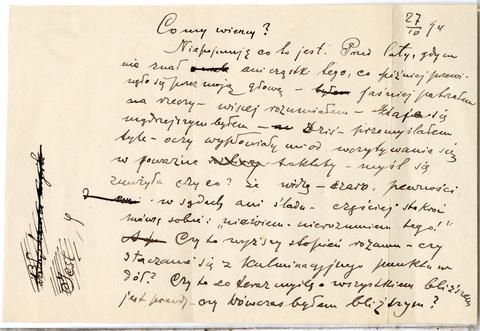 27/IV 94
Co my wiemy?
Niepojmuję co to jest. Przed laty, gdym
nie znał ani cząstki tego, co później przewi-
nęło się przez moją głowę – jaśniej patrzałem
na rzeczy – więcej rozumiałem – zdaje się
mądrzejszym byłem – Dziś – przemyślałem
tyle – oczy wypłowiały mi od wczytywania się
w poważne traktaty – myśl się
zużyła czy co? że widzę – szaro, pewności
w sądach ani śladu – częściej stokroć
mówię sobie: "niewiem – nierozumiem tego!"
Czy to wyższy stopień rozumu – czy
staczanie się z kulminacyjnego punktu w
dół? Czy to co teraz myślę o wszystkiem bliższem
jest prawdy – czy wówczas byłem bliższym?